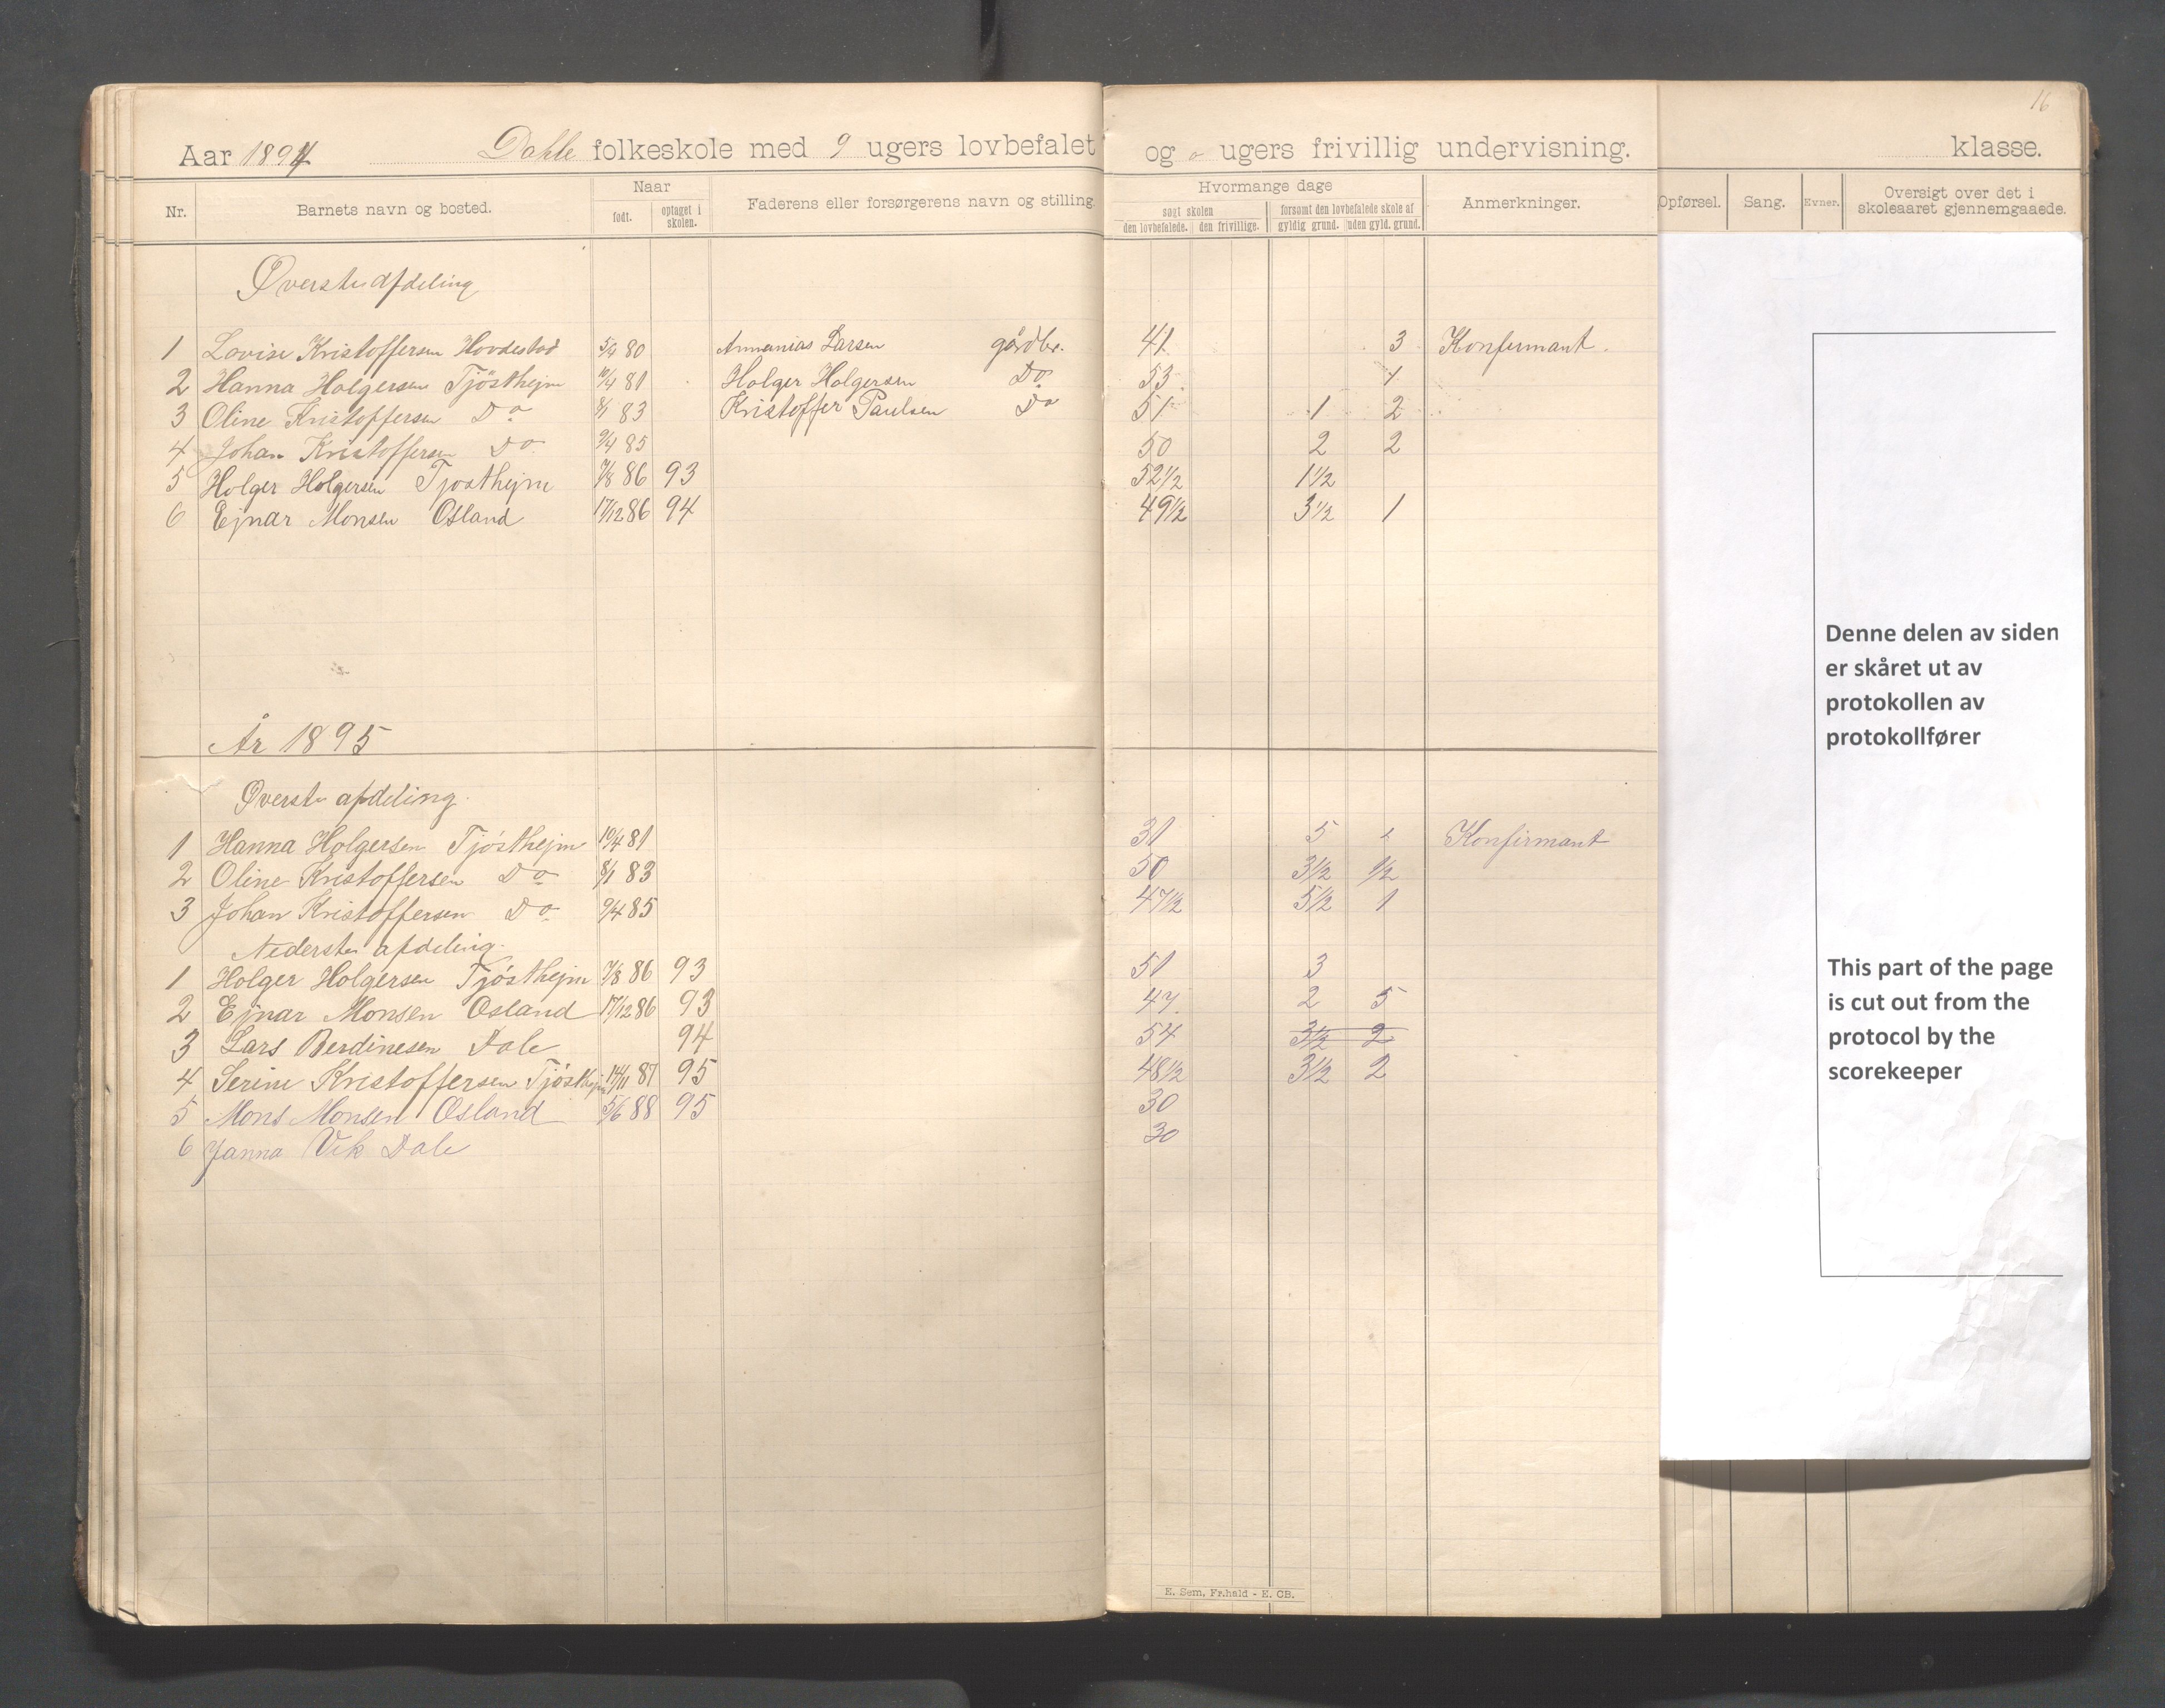 16
Aar 1894 Dahle folkeskole med 9 ugers lovbefalet og 0 ugers frivillig undervisning. klasse.
Nr. Barnets navn og bosted. Naar født. optaget i skolen. Faderens eller forsørgerens navn og stilling. Hvormange dage søgt skolen den lovbefalede. den frivillige. forsømt den lovbefalede skole af gyldig grund. uden gyld. grund. Anmerkninger. Opførsel. Sang. Evner. Oversigt over det i skoleaaret gjennemgaaede.
Øverste afdeling
1 Lovise Kristoffersen Hovdestad 5/4 80 Annanias Larsen gårdbr. 41 3 Konfirmant.
2 Hanna Holgersen Tjøsthejm 10/4 81 Holger Holgersen Do 53 1
3 Oline Kristoffersen Do 8/1 83 Kristoffer Paulsen Do 51 1 2
4 Johan Kristoffersen Do 9/4 85 50 2 2
5 Holger Holgersen Tjosthejm 7/8 86 93 52 1/2 1 1/2
6 Ejnar Monsen Osland 17/12 86 94 49 1/2 3 1/2 1
År 1895
Øverste afdeling.
1 Hanna Holgersen Tjósthejm 10/4 81 31 5 Konfirmant
2 Oline Kristoffersen Do 8/1 83 50 3 1/2 1/2
3 Johan Kristoffersen Do 9/4 85 47 1/2 5 1/2 1
Nederste afdeling.
1 Holger Holgersen Tjósthejm 7/8 86 93 51 3
2 Ejnar Monsen Osland 17/12 86 93 47 2 5
3 Lars Berdinesen Dale 94 54 3 1/2 2
4 Serine Kristoffersen Tjósthejm 14/11 87 95 48 1/2 3 1/2 2
5 Mons Monsen Osland 5/6 88 95 30
6 Janna Vik Dale 30
E. Sem, Fr.hald - E. CB.
Denne delen av siden
er skåret ut av
protokollen av
protokollfører
This part of the page
is cut out from the
protocol by the
scorekeeper